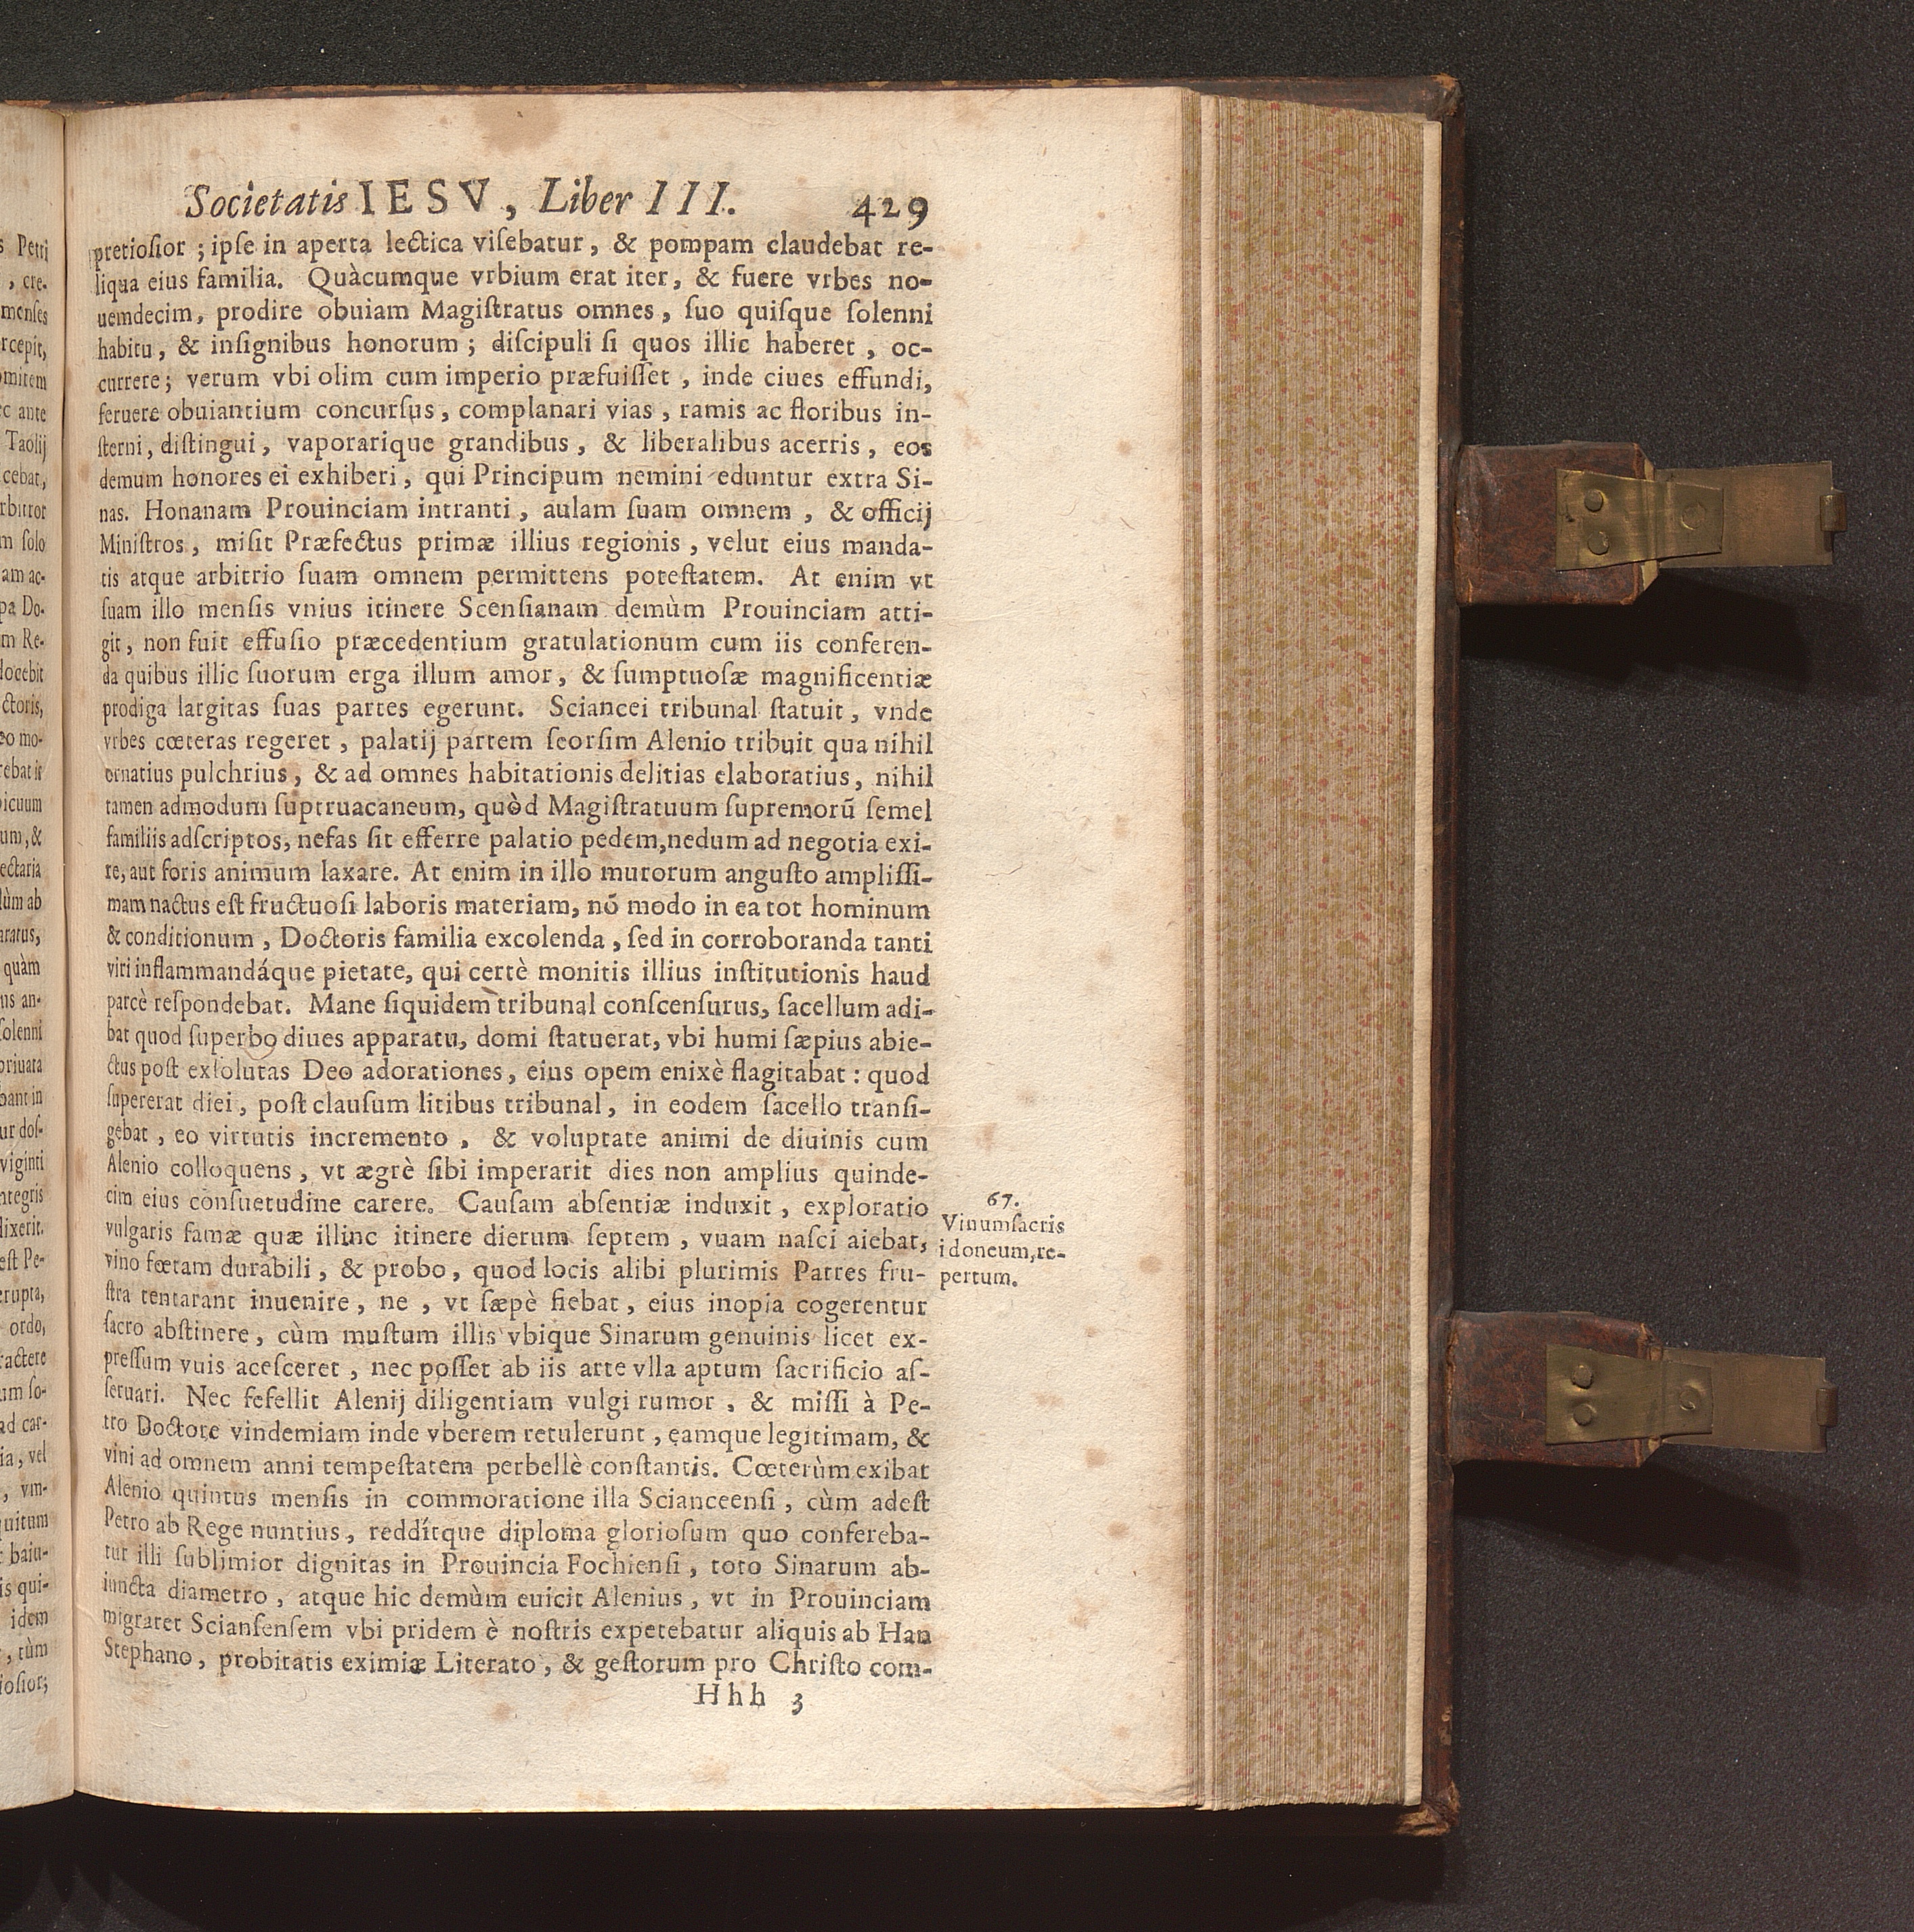 Societatis IESV, Liber III. 429
pretiosior ; ipse in aperta lectica visebatur, & pompam claudebat re-
liqua eius familia. Quàcumque vrbium erat iter, & fuere vrbes no-
uemdecim, prodire obuiam Magistratus omnes, suo quisque solenni
habitu, & insignibus honorum ; discipuli si quos illic haberet, oc-
currere; verum vbi olim cum imperio præfuisset, inde ciues effundi,
feruere obuiantium concursus, complanari vias, ramis ac floribus in-
sterni, distingui, vaporarique grandibus, & liberalibus acerris, eos
demum honores ei exhiberi, qui Principum nemini eduntur extra Si-
nas. Honanam Prouinciam intranti, aulam suam omnem, & officij
Ministros, misit Præfectus primæ illius regionis, velut eius manda-
tis atque arbitrio suam omnem permittens potestatem. At enim vt
suam illo mensis vnius itinere Scensianam demùm Prouinciam atti-
git, non fuit effusio præcedentium gratulationum cum iis conferen-
da quibus illic suorum erga illum amor, & sumptuosæ magnificentiæ
prodiga largitas suas partes egerunt. Sciancei tribunal statuit, vnde
vrbes cœteras regeret, palatij partem seorsim Alenio tribuit qua nihil
ornatius pulchrius, & ad omnes habitationis delitias elaboratius, nihil
tamen admodum superuacaneum, quòd Magistratuum supremorū semel
familiis adscriptos, nefas sit efferre palatio pedem, nedum ad negotia exi-
re, aut foris animum laxare. At enim in illo murorum angusto amplissi-
mam nactus est fructuosi laboris materiam, nō modo in ea tot hominum
& conditionum, Doctoris familia excolenda, sed in corroboranda tanti
viri inflammandáque pietate, qui certè monitis illius institutionis haud
parcè respondebat. Mane siquidem tribunal conscensurus, sacellum adi-
bat quod superbo diues apparatu, domi statuerat, vbi humi sæpius abie-
ctus post exsolutas Deo adorationes, eius opem enixè flagitabat : quod
supererat diei, post clausum litibus tribunal, in eodem sacello transi-
gebat, eo virtutis incremento, & voluptate animi de diuinis cum
Alenio colloquens, vt ægrè sibi imperarit dies non amplius quinde-
cim eius consuetudine carere. Causam absentiæ induxit, exploratio
vulgaris famæ quæ illinc itinere dierum septem, vuam nasci aiebat,
vino fœtam durabili, & probo, quod locis alibi plurimis Patres fru-
stra tentarant inuenire, ne, vt sæpè fiebat, eius inopia cogerentur
sacro abstinere, cùm mustum illis vbique Sinarum genuinis licet ex-
pressum vuis acesceret, nec posset ab iis arte vlla aptum sacrificio as-
seruari. Nec fefellit Alenij diligentiam vulgi rumor, & missi à Pe-
tro Doctore vindemiam inde vberem retulerunt, eamque legitimam, &
vini ad omnem anni tempestatem perbellè constantis. Cœterùm exibat
Alenio quintus mensis in commoratione illa Scianceensi, cùm adest
Petro ab Rege nuntius, reddítque diploma gloriosum quo confereba-
tur illi sublimior dignitas in Prouincia Fochiensi, toto Sinarum ab-
iuncta diametro, atque hic demùm euicit Alenius, vt in Prouinciam
migraret Sciansensem vbi pridem è nostris expetebatur aliquis ab Han
Stephano, probitatis eximiæ Literato, & gestorum pro Christo com-
Hhh 3
67.
Vinum sacris
idoneum, re-
pertum.